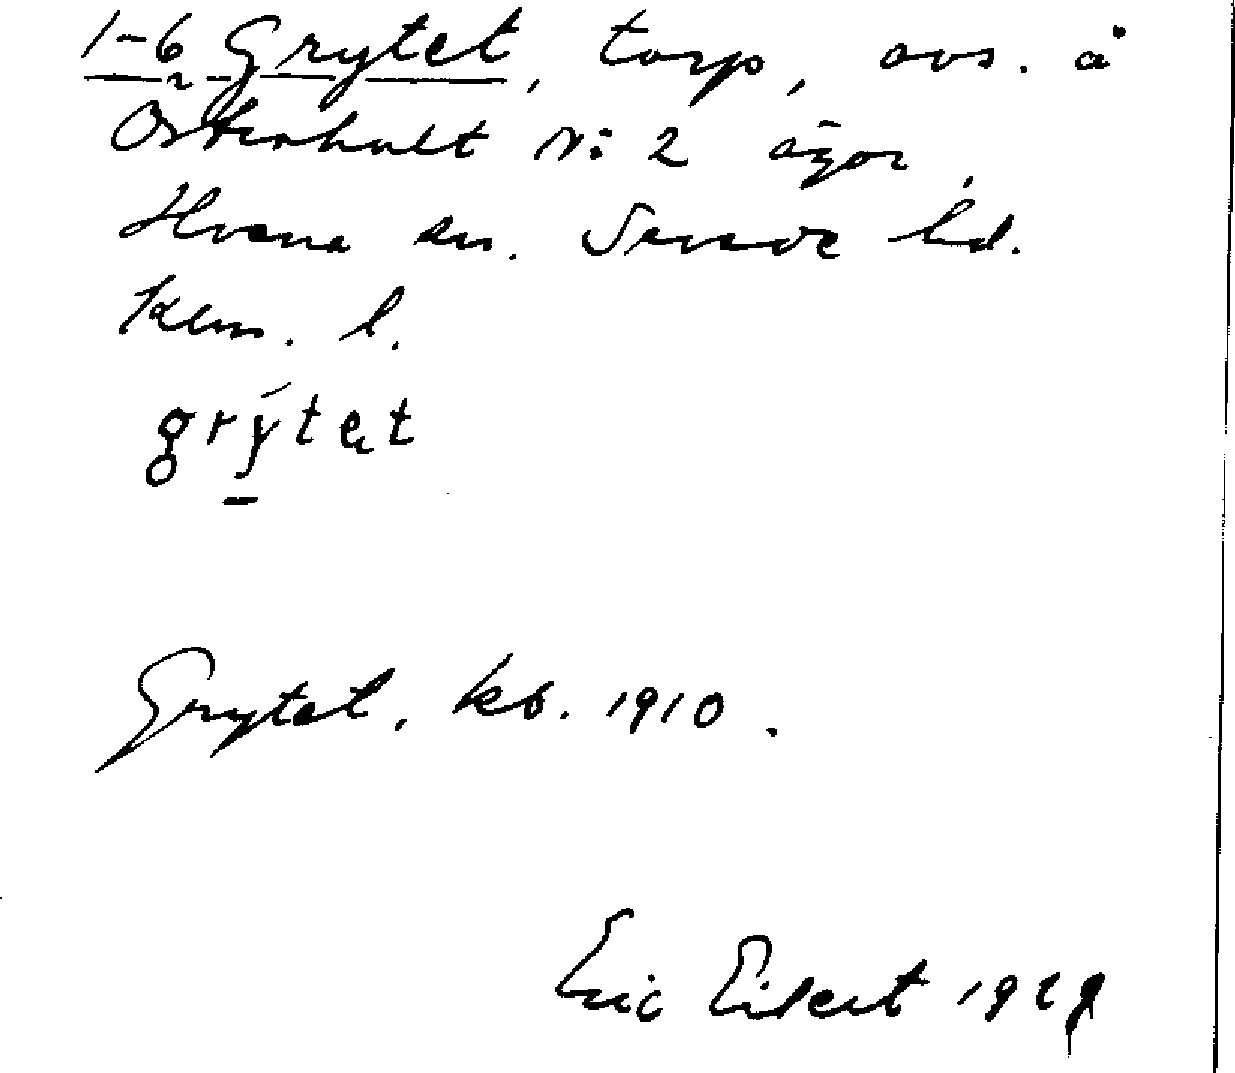 1-6 Grytet, torp, avs. å
Österhult N:2 ägor,
Hvena sn. Sevede hd.
Klm. l.
grýtet
Grytet, kb. 1910.
Eric Eilert 1929